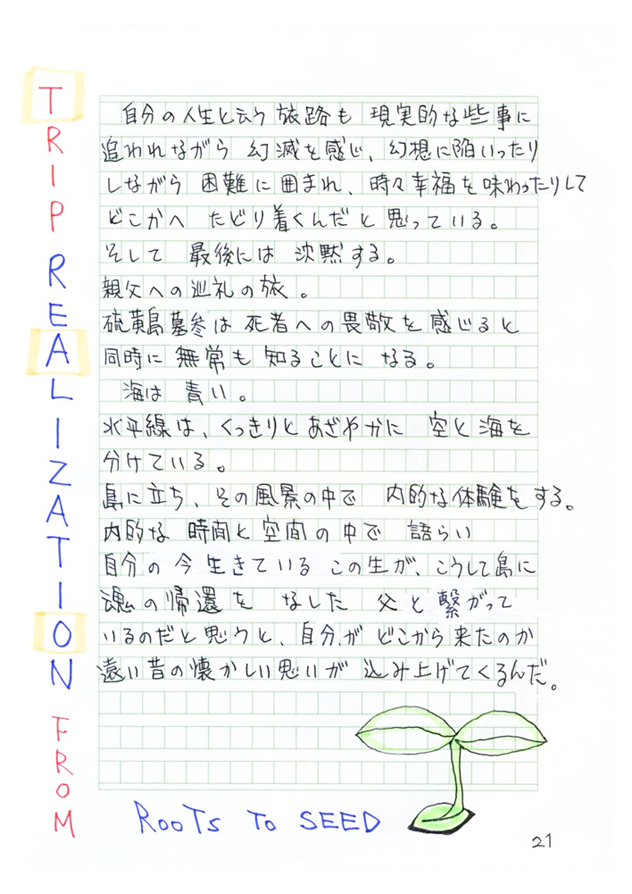 TRIP REALIZATION FROM
自分の人生と云う旅路も 現実的な些事に
追われながら 幻滅を感じ、幻想に陥いったり
しながら 困難に囲まれ、時々幸福を味わったりして
どこかへ たどり着くんだと思っている。
そして 最後には 沈黙する。
親父への巡礼の旅。
硫黄島墓参は死者への畏敬を感じると
同時に無常も知ることに なる。
海は 青い。
水平線は、くっきりとあざやかに 空と海を
分けている。
島に立ち、その風景の中で 内的な体験をする。
内的な 時間と空間の中で 語らい
自分の今生きている この生が、こうして島に
魂の帰還を なした 父と繋がって
いるのだと思うと、自分がどこから来たのか
遠い昔の懐かしい思いが 込み上げてくるんだ。
ROOTS TO SEED
21